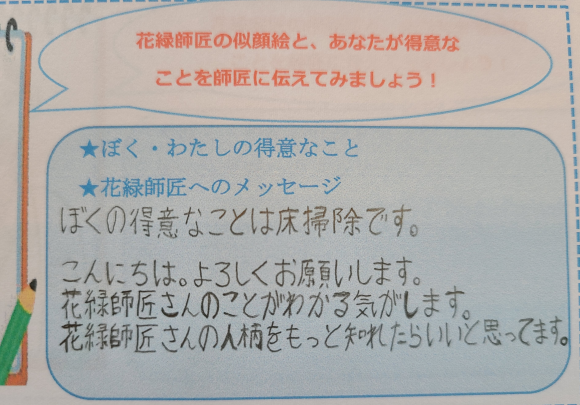 花緑師匠の似顔絵と、あなたが得意な
ことを師匠に伝えてみましょう！
★ぼく・わたしの得意なこと
★花緑師匠へのメッセージ
ぼくの得意なことは床掃除です。
こんにちは。よろしくお願いします。
花緑師匠さんのことがわかる気がします。
花緑師匠さんの人柄をもっと知れたらいいと思ってます。